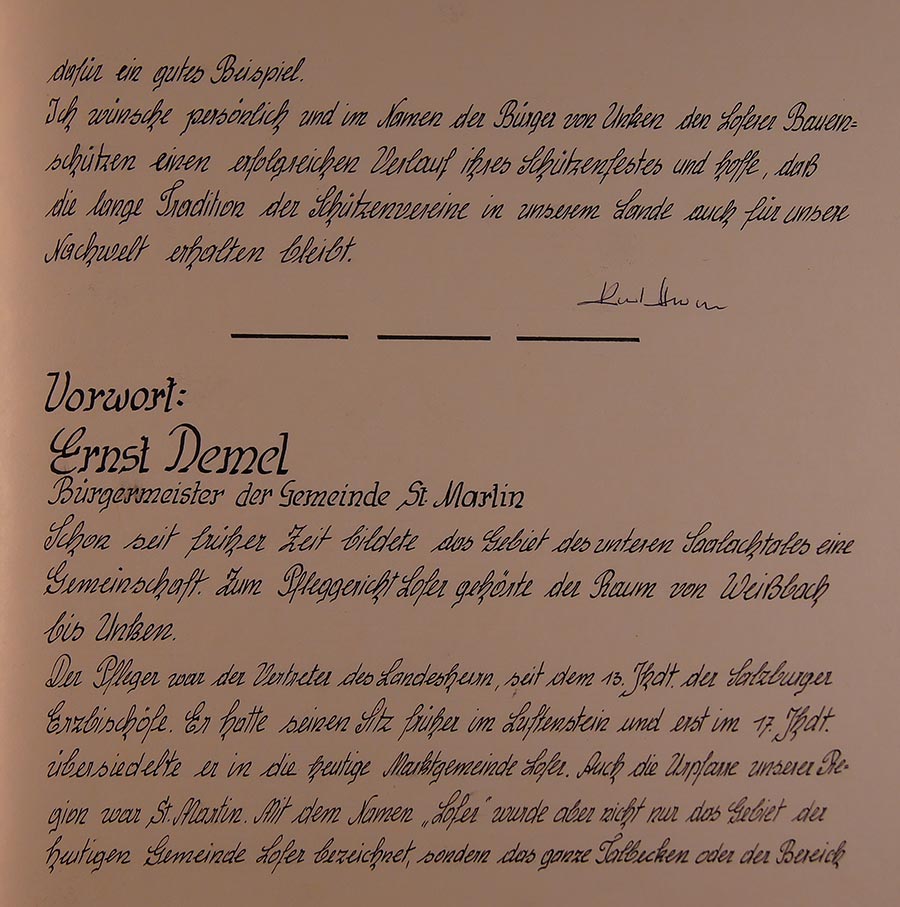 dafür ein gutes Beispiel.
Ich wünsche persönlich und im Namen der Bürger von Unken den Loferer Bauern=
schützen einen erfolgreichen Verlauf ihres Schützenfestes und hoffe, daß
die lange Tradition der Schützenvereine in unserem Lande auch für unsere
Nachwelt erhalten bleibt.
Vorwort:
Ernst Demel
Bürgermeister der Gemeinde St. Martin
Schon seit früher Zeit bildete das Gebiet des unteren Saalachtales eine
Gemeinschaft. Zum Pfleggericht Lofer gehörte der Raum von Weißbach
bis Unken.
Der Pfleger war der Vertreter des Landesherrn, seit dem 13. Jhdt. der Salzburger
Erzbischöfe. Er hatte seinen Sitz früher im Luftenstein und erst im 17. Jhdt.
übersiedelte er in die heutige Marktgemeinde Lofer. Auch die Urpfarre unserer Re-
gion war St. Martin. Mit dem Namen „Lofer" wurde aber nicht nur das Gebiet der
heutigen Gemeinde Lofer bezeichnet, sondern das ganze Talbecken oder der Bereich